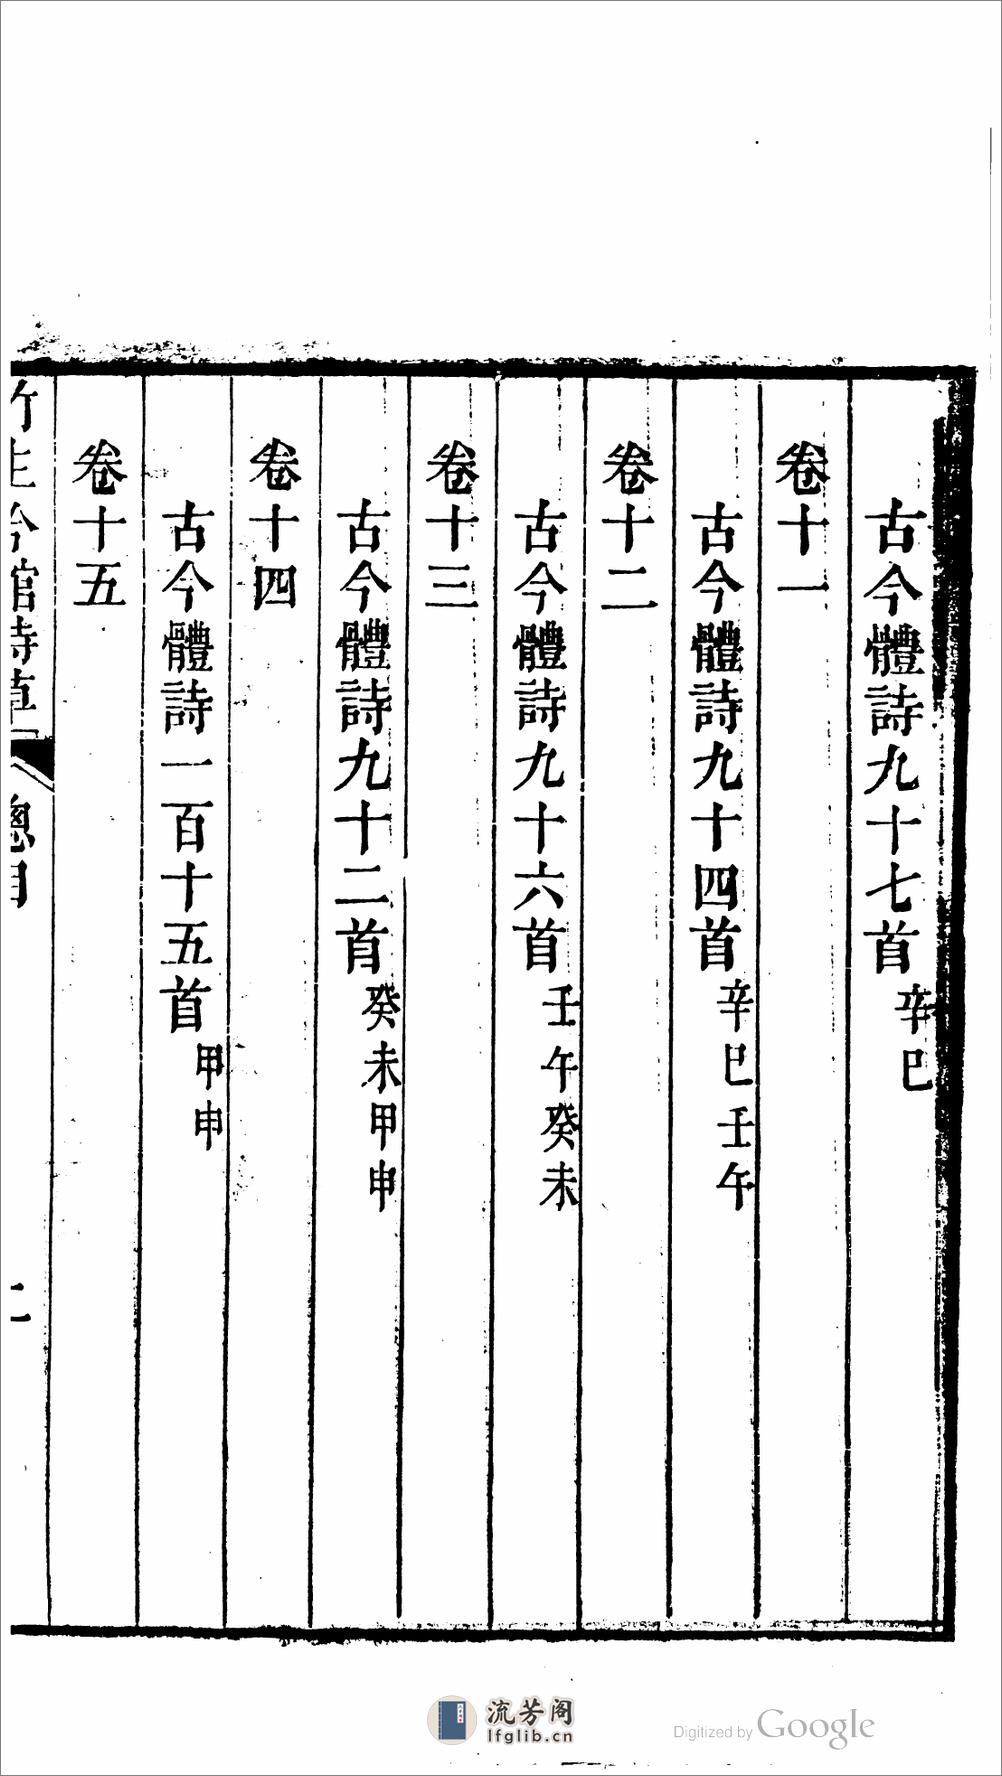 古今體詩九十七首辛巳
卷十一
古今體詩九十四首辛巳壬午
卷十二
古今體詩九十六首壬午癸未
卷十三
古今體詩九十二首癸未甲申
卷十四
古今體詩一百十五首甲申
卷十五
竹生吟館詩草 總目
流芳阁
lfglib.cn
Digitized by Google